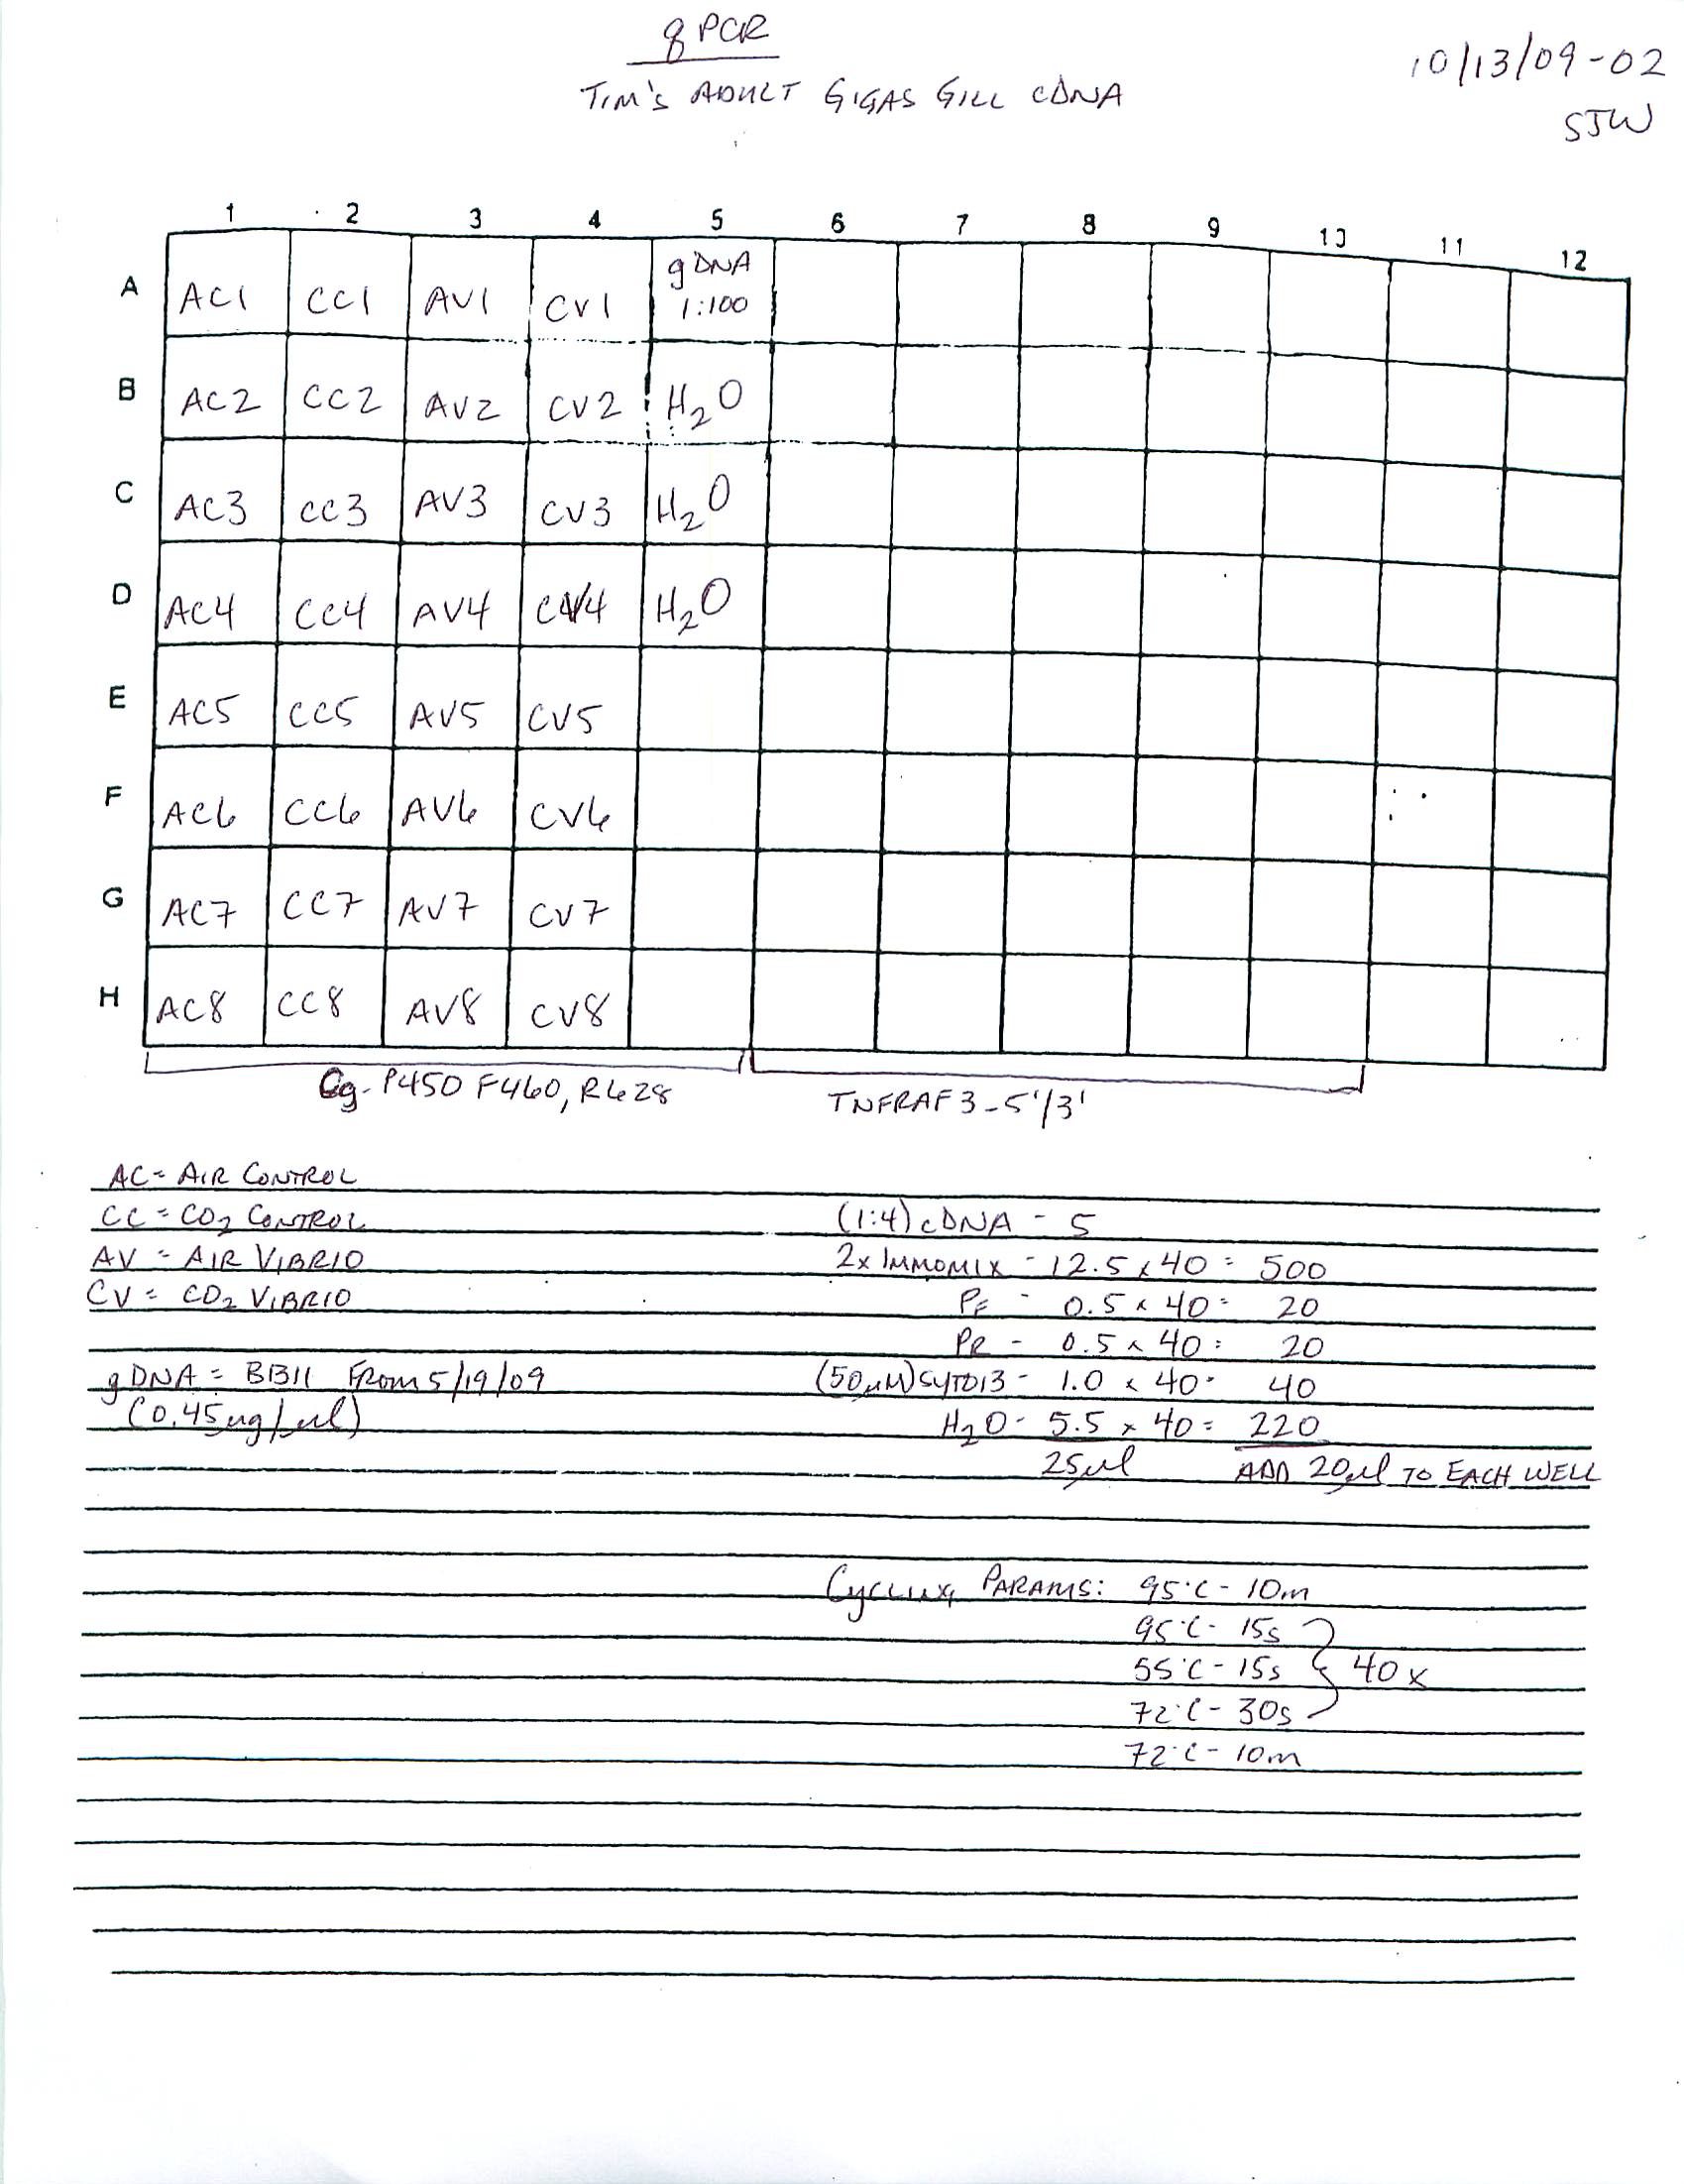 qPCR
10/13/09-02
TIM'S ADULT GIGAS GILL cDNA
SJW
1 2 3 4 5 6 7 8 9 10 11 12
A AC1 CC1 AV1 CV1 gDNA 1:100
B AC2 CC2 AV2 CV2 H2O
C AC3 CC3 AV3 CV3 H2O
D AC4 CC4 AV4 CV4 H2O
E AC5 CC5 AV5 CV5
F AC6 CC6 AV6 CV6
G AC7 CC7 AV7 CV7
H AC8 CC8 AV8 CV8
Cg-P450 F460, R628 TNFRAF3-5'/3'
AC = AIR CONTROL
CC = CO2 CONTROL
AV = AIR VIBRIO
CV = CO2 VIBRIO
gDNA = BB11 FROM 5/19/09
(0.45ug/ul)
(1:4) cDNA - 5
2x IMMOMIX - 12.5 x 40 = 500
PF - 0.5 x 40 = 20
PR - 0.5 x 40 = 20
(50uM) SYTO13 - 1.0 x 40 = 40
H2O - 5.5 x 40 = 220
25ul ADD 20ul TO EACH WELL
CYCLING PARAMS: 95°C - 10m
95°C - 15s
55°C - 15s } 40x
72°C - 30s
72°C - 10m